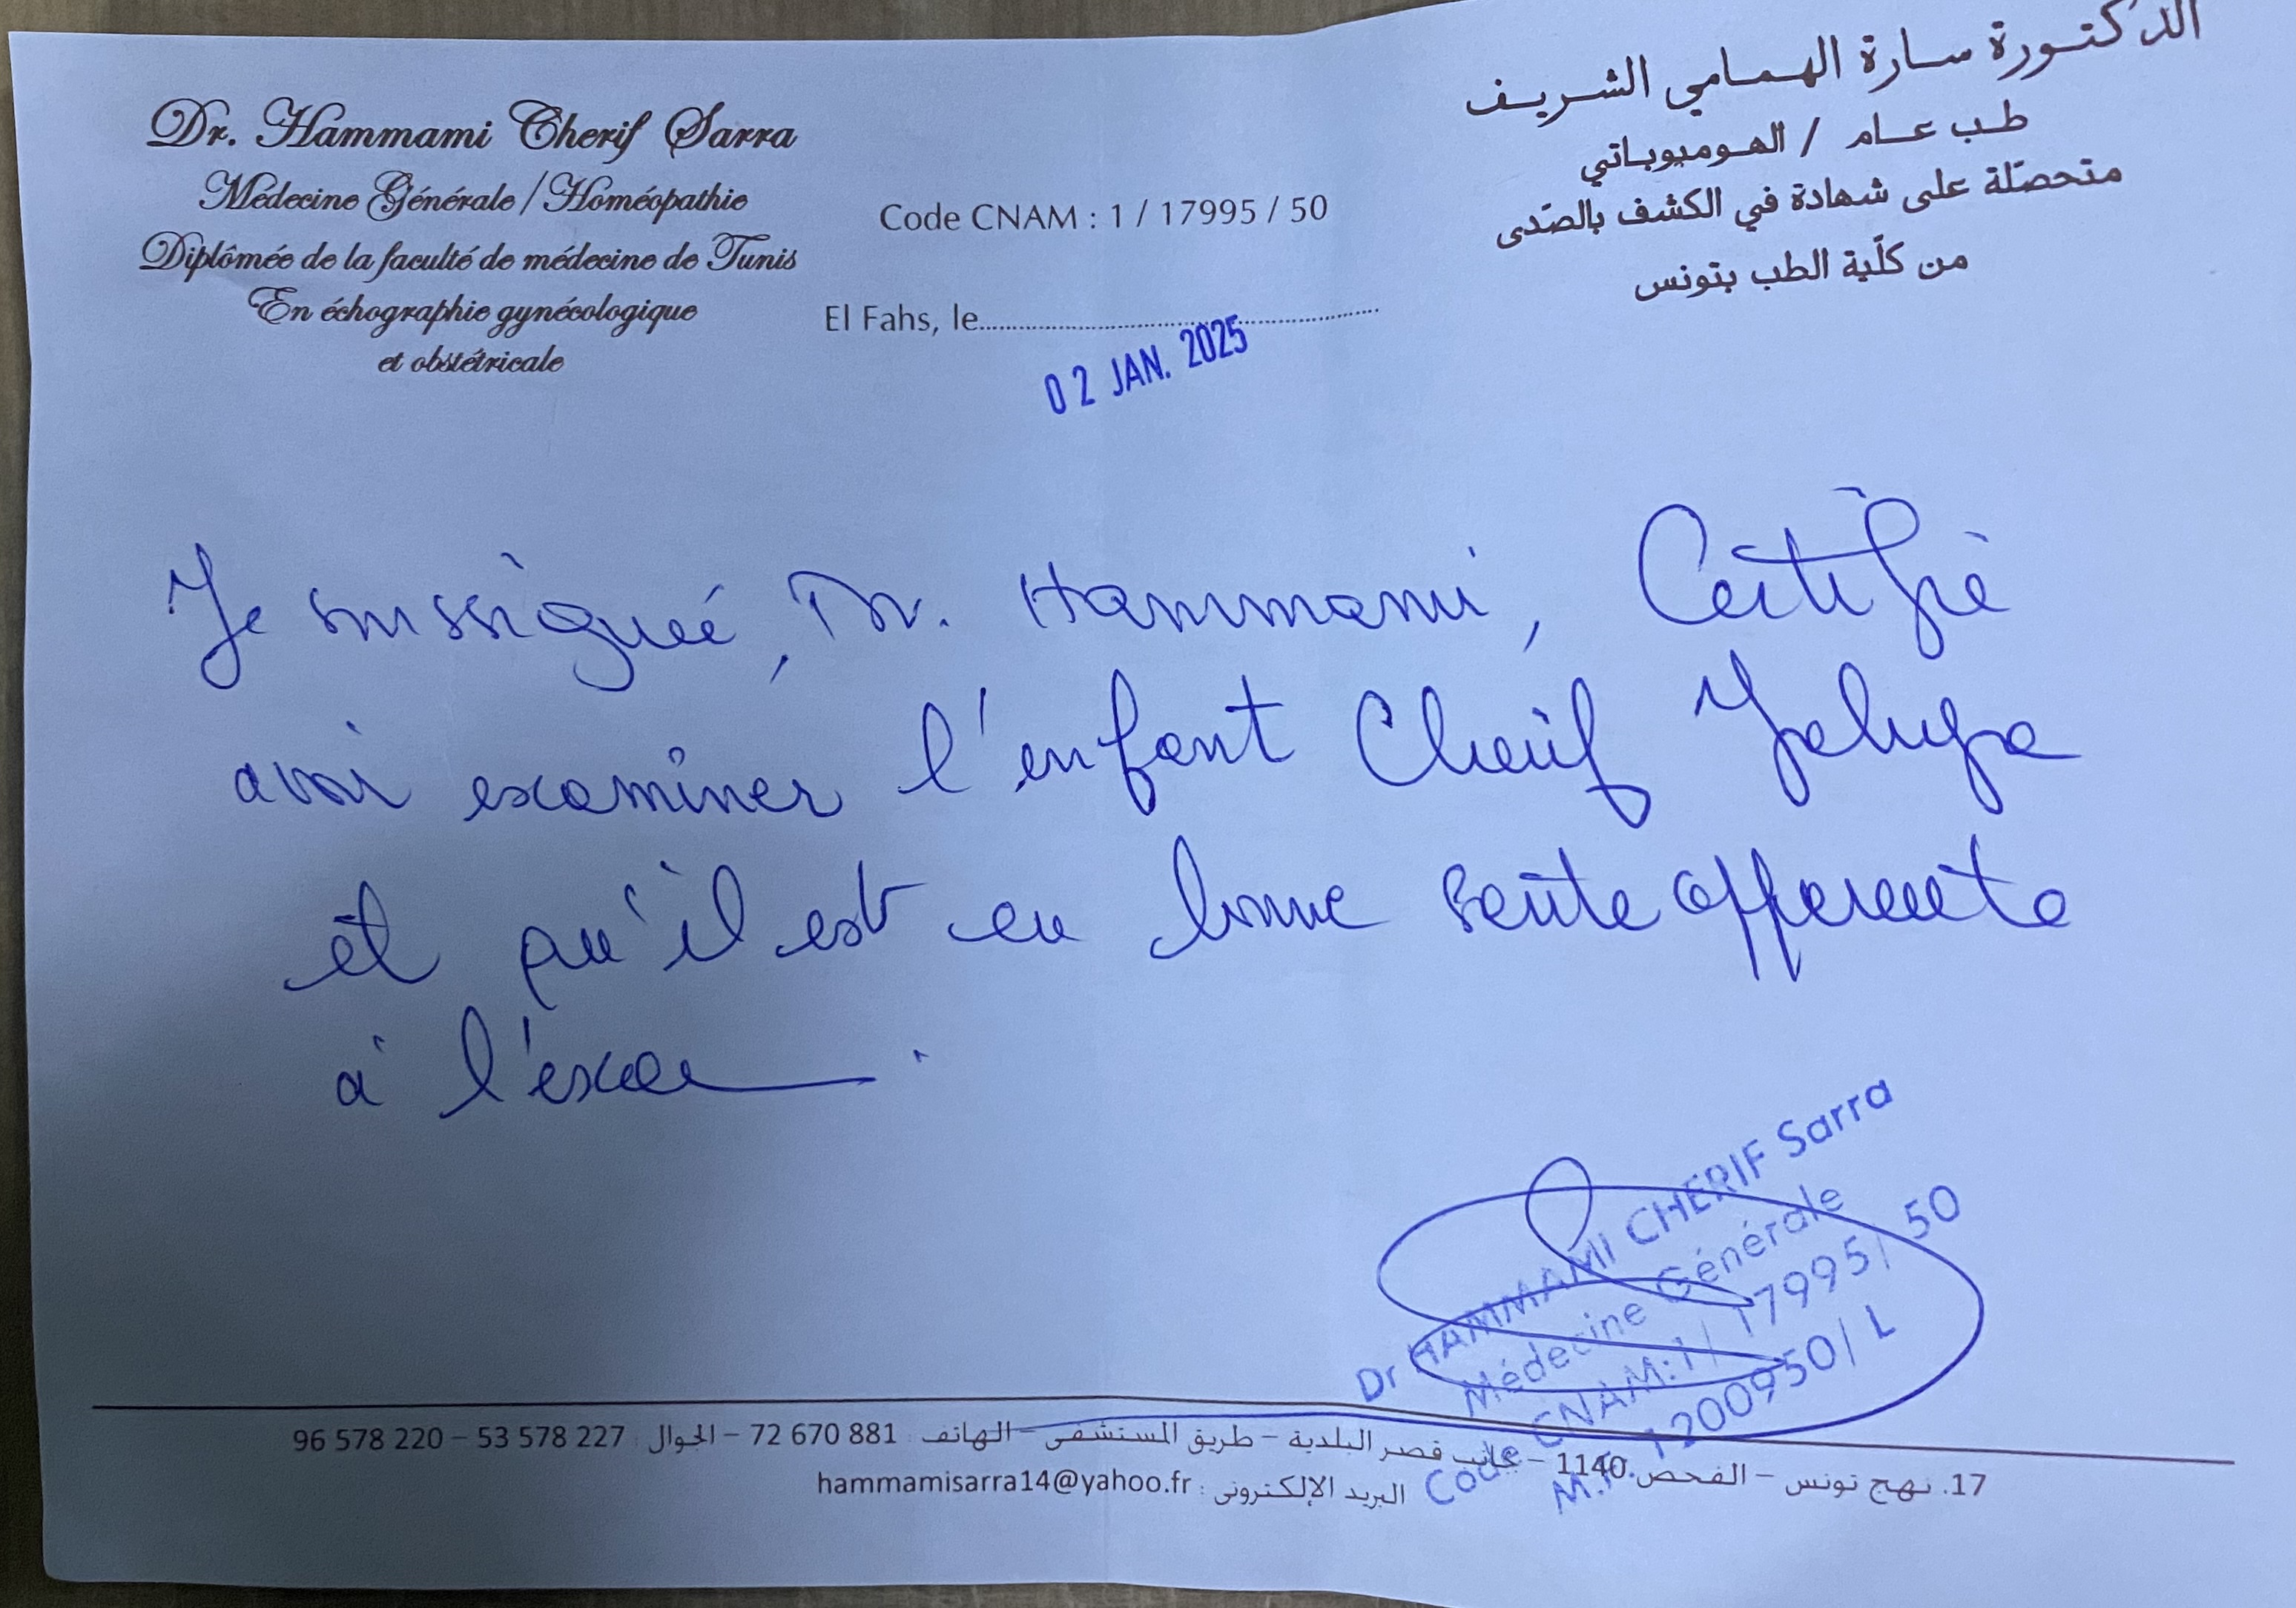 Dr. Hammami Cherif Sarra
Médecine Générale / Homéopathie
Diplômée de la faculté de médecine de Tunis
En échographie gynécologique
et obstétricale
Code CNAM : 1 / 17995 / 50
El Fahs, le
02 JAN. 2025
الدكتورة سارة الهمامي الشريف
طب عام / الهوميوباتي
متحصّلة على شهادة في الكشف بالصّدى
من كلّية الطب بتونس
Je soussignée, Dr. Hammami, Certifie
avoir examiner l'enfant Cherif Yahya
et qu'il est en bonne sante apparente
à l'exam
Dr HAMMAMI CHERIF Sarra
Médecine Générale
Code CNAM: 1 / 17995 / 50
M.F. 1200950 / L
17. نهج تونس – الفحص 1140 – جانب قصر البلدية – طريق المستشفى – الهاتف : 72 670 881 – الجوال : 53 578 227 – 96 578 220
البريد الإلكتروني : hammamisarra14@yahoo.fr